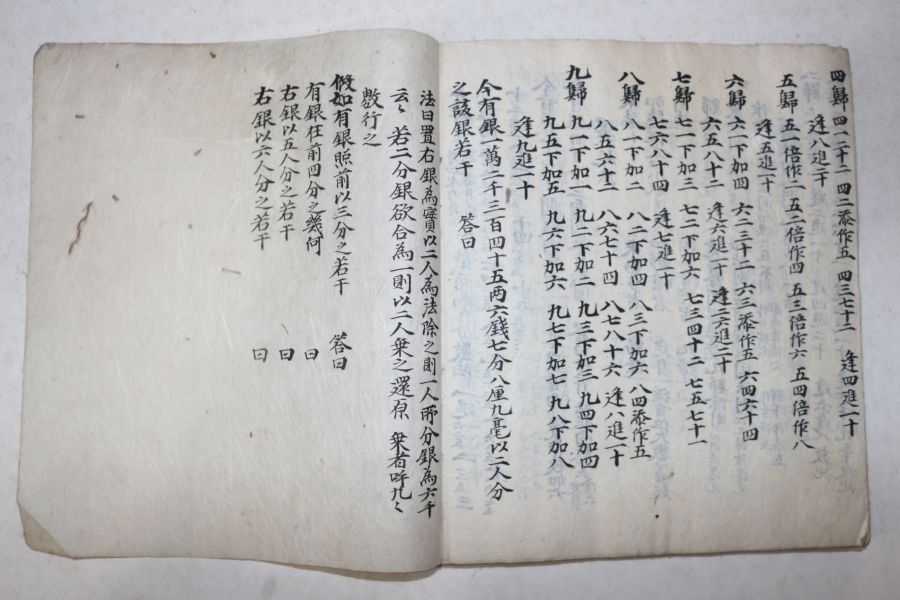 四歸 四一二十二 四二添作五 四三七十二 逢四進一十
逢八進二十
五歸 五一倍作二 五二倍作四 五三倍作六 五四倍作八
逢五進一十
六歸 六一下加四 六二三十二 六三添作五 六四六十四
六五八十二 逢六進一十 逢二六進二十
七歸 七一下加三 七二下加六 七三四十二 七五七十一
七六八十四 逢七進一十
八歸 八一下加二 八二下加四 八三下加六 八四添作五
八五六十二 八六七十四 八七八十六 逢八進一十
九歸 九一下加一 九二下加二 九三下加三 九四下加四
九五下加五 九六下加六 九七下加七 九八下加八
逢九進一十
今有銀一萬二千三百四十五两六錢七分八厘九毫以二人分
之該銀若干 答曰
法曰置右銀為實以二人為法除之則一人所分銀為六千
云〻 若二分銀欲合為一則以二人乘之還原 乘者呼九〻
數行之
假如有銀照前以三分之若干 答曰
有銀在前四分之幾何 曰
右銀以五人分之若干 曰
右銀以六人分之若干 曰